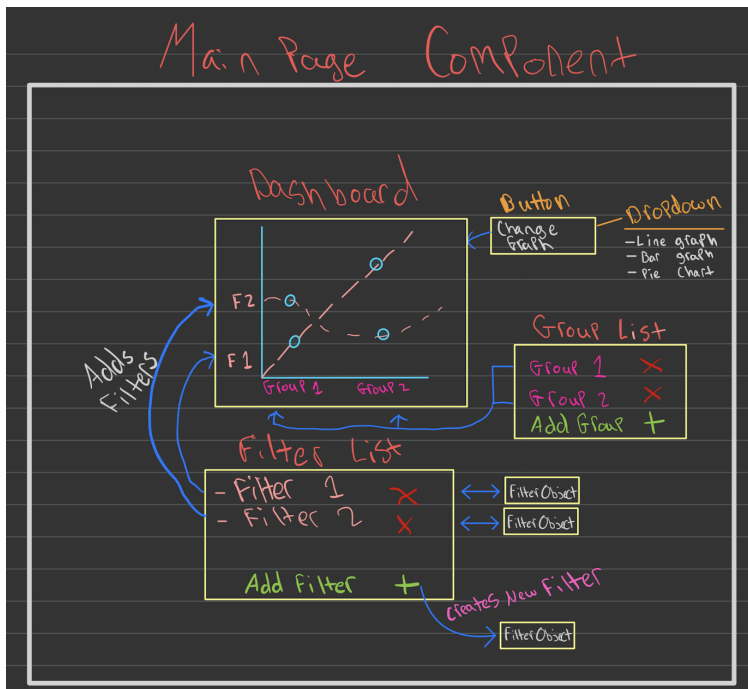 Main Page Component
Dashboard
Button
Change
Graph
Dropdown
- Line graph
- Bar graph
- Pie Chart
F2
F1
Group 1
Group 2
Adds
Filters
Group List
Group 1 X
Group 2 X
Add Group +
Filter List
- Filter 1 X
- Filter 2 X
Add Filter +
FilterObject
FilterObject
Creates New Filter
FilterObject